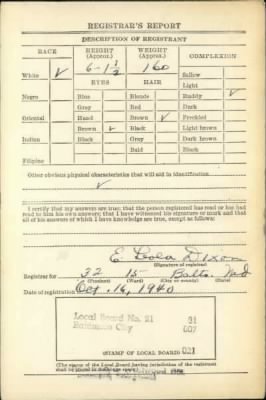 REGISTRAR'S REPORT
DESCRIPTION OF REGISTRANT
RACE HEIGHT (Approx.) WEIGHT (Approx.) COMPLEXION
White ✓ 6-1 1/2 160 Sallow
EYES HAIR Light
Ruddy ✓
Negro Blue Blonde Dark
Gray Red Freckled
Oriental Hazel Brown ✓ Light brown
Brown ✓ Black Dark brown
Indian Black Gray Black
Bald
Filipino
Other obvious physical characteristics that will aid in identification
✓
I certify that my answers are true; that the person registered has read or has had
read to him his own answers; that I have witnessed his signature or mark and that
all of his answers of which I have knowledge are true, except as follows:
E. Leola Dixon
(Signature of registrar)
Registrar for 32 15 Balto. Md
(Precinct) (Ward) (City or county) (State)
Date of registration Oct. 16, 1940
Local Board No. 21 31
Baltimore City 007
021
(STAMP OF LOCAL BOARD)
(The stamp of the Local Board having jurisdiction of the registrant
shall be placed in the above space.)